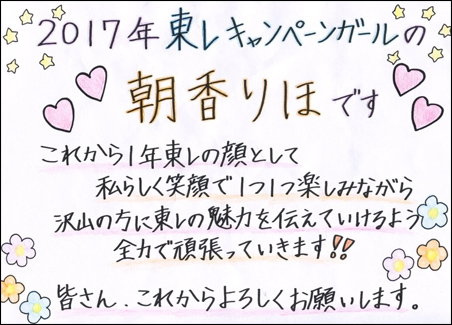 2017年東レキャンペーンガールの
朝香りほです
これから1年東レの顔として
私らしく笑顔で1つ1つ楽しみながら
沢山の方に東レの魅力を伝えていけるよう
全力で頑張っていきます!!
皆さん、これからよろしくお願いします。